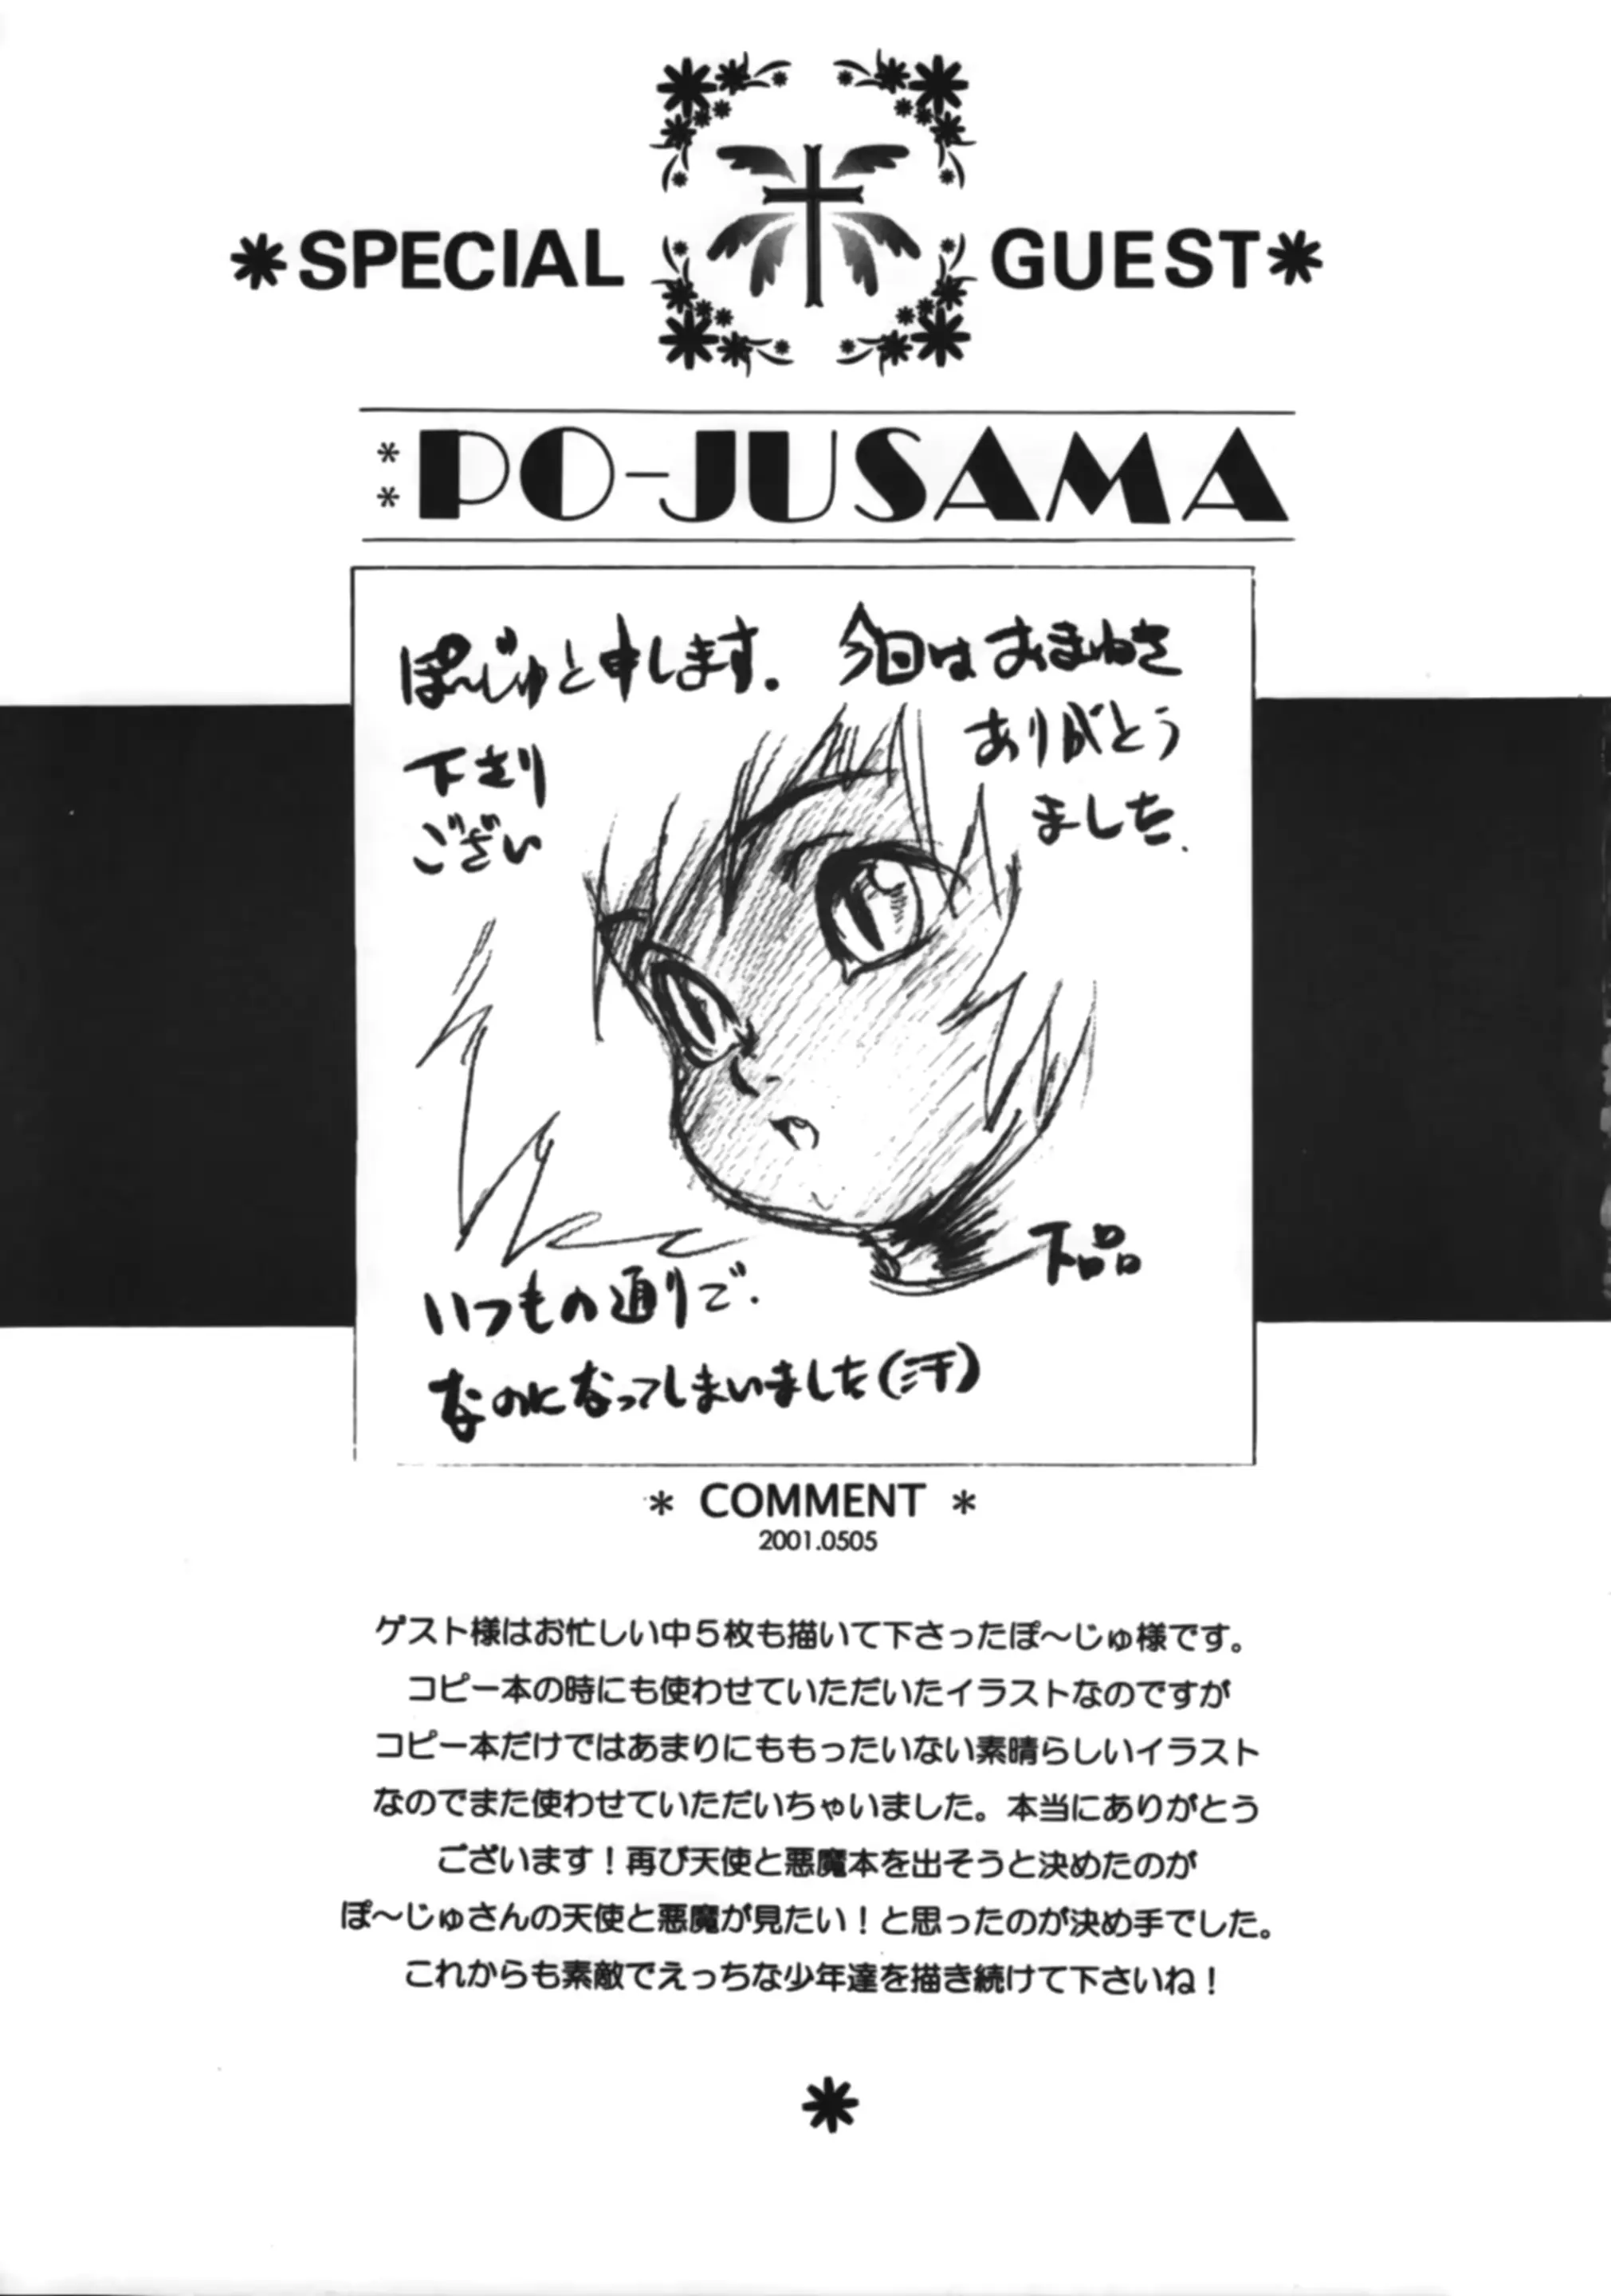 *SPECIAL GUEST*
**PO-JUSAMA
ぽ〜じゅと申します. 今回はおまねき
下さり ありがとう
ござい ました.
いつもの通りで. 下品
なのになってしまいました(汗)
* COMMENT *
2001.0505
ゲスト様はお忙しい中5枚も描いて下さったぽ〜じゅ様です。
コピー本の時にも使わせていただいたイラストなのですが
コピー本だけではあまりにももったいない素晴らしいイラスト
なのでまた使わせていただいちゃいました。本当にありがとう
ございます！再び天使と悪魔本を出そうと決めたのが
ぽ〜じゅさんの天使と悪魔が見たい！と思ったのが決め手でした。
これからも素敵でえっちな少年達を描き続けて下さいね！